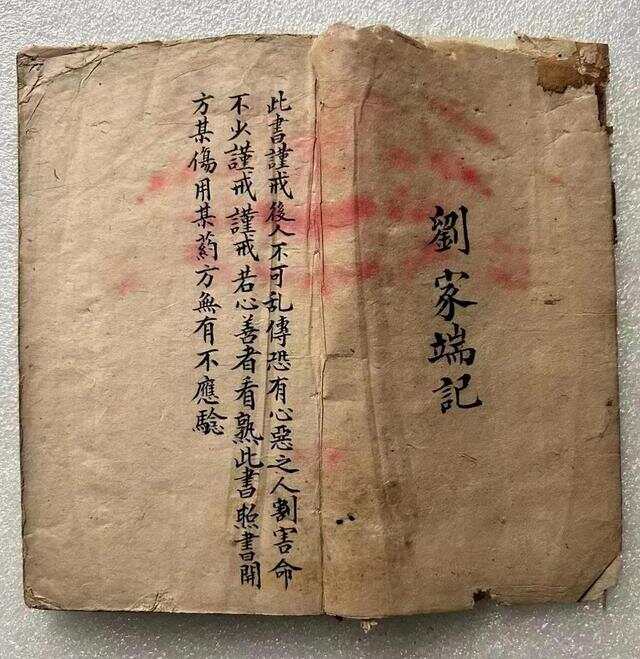 劉家端記
此書謹戒後人不可乱傳恐有心惡之人割害命
不少謹戒謹戒若心善者看熟此書照書開
方某傷用某葯方無有不應騐